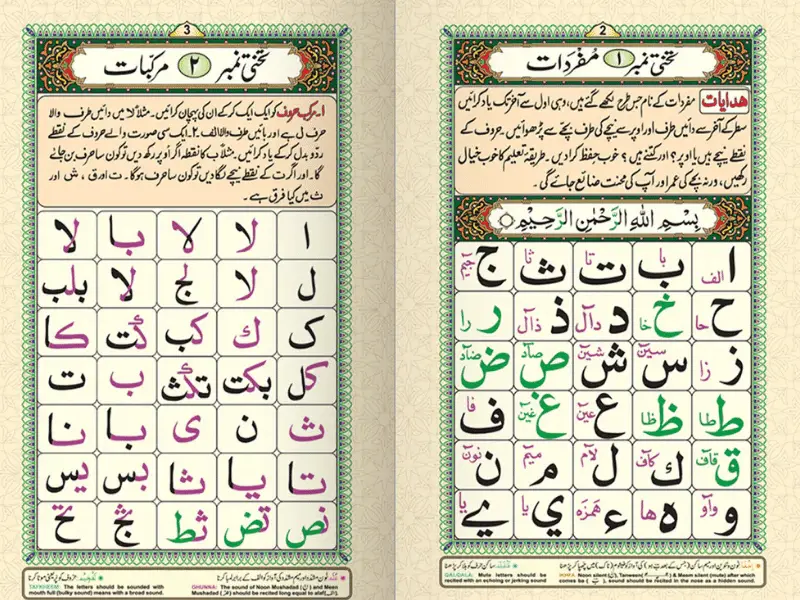 2
تختی نمبر ۱ مُفرَدات
ھدایات مفردات کے نام جس طرح لکھے گئے ہیں، وہی اول سے آخر تک یاد کرائیں
سطر کے آخر سے دائیں طرف اور اوپر سے نیچے کی طرف بچے سے پڑھوائیں۔ حروف کے
نقطے نیچے ہیں یا اوپر؟ اور کتنے ہیں؟ خوب حفظ کرا دیں۔ طریقۂ تعلیم کا خوب خیال
رکھیں، ورنہ بچے کی عمر اور آپ کی محنت ضائع جائے گی۔
بِسْمِ اللهِ الرَّحْمٰنِ الرَّحِيْمِ
ا الف ب با ت تا ث ثا ج جیم
ح حا خ خا د دال ذ ذال ر را
ز زا س سین ش شین ص صاد ض ضاد
ط طا ظ ظا ع عین غ غین ف فا
ق قاف ك کاف ل لام م میم ن نون
و واو ہ ھا ء ھمزہ ي یا ے یا
QALQALA: Mute letters should be recited with an echoing or jerking sound
Noon silent (ن), Tanween & Meem silent (mute) after which comes ba (ب), sound should be recited in the nose as a hidden sound.
3
تختی نمبر ۲ مرکبات
۱۔ مرکب حروف کو ایک ایک کر کے ان کی پہچان کرائیں۔ مثلاً لا میں دائیں طرف والا
حرف ل ہے اور بائیں طرف والا الف ۔۲۔ ایک سی صورت والے حروف کے نقطے
ردّو بدل کر کے یاد کرائیں۔ مثلاً ب کا نقطہ اگر اوپر رکھ دیں تو کون سا حرف بن جائے
گا۔ اور اگر ت کے نقطے نیچے لگا دیں تو کون سا حرف ہوگا۔ ت اور ق ، ش اور
ث میں کیا فرق ہے۔
ا لا لا با لا
ل لا لج لا بلب
ک ك کب کت کا
کل بکت تکث ب ت
ث ن ی با نا
تا یا ثا بس یس
نص تض ثط بج تح
TAFKHEEM: The letters should be sounded with mouth full (bulky sound) means with a broad sound.
GHUNNA: The sound of Noon Mushadad (نّ) and Meem Mushadad (مّ) should be recited long equal to alaf